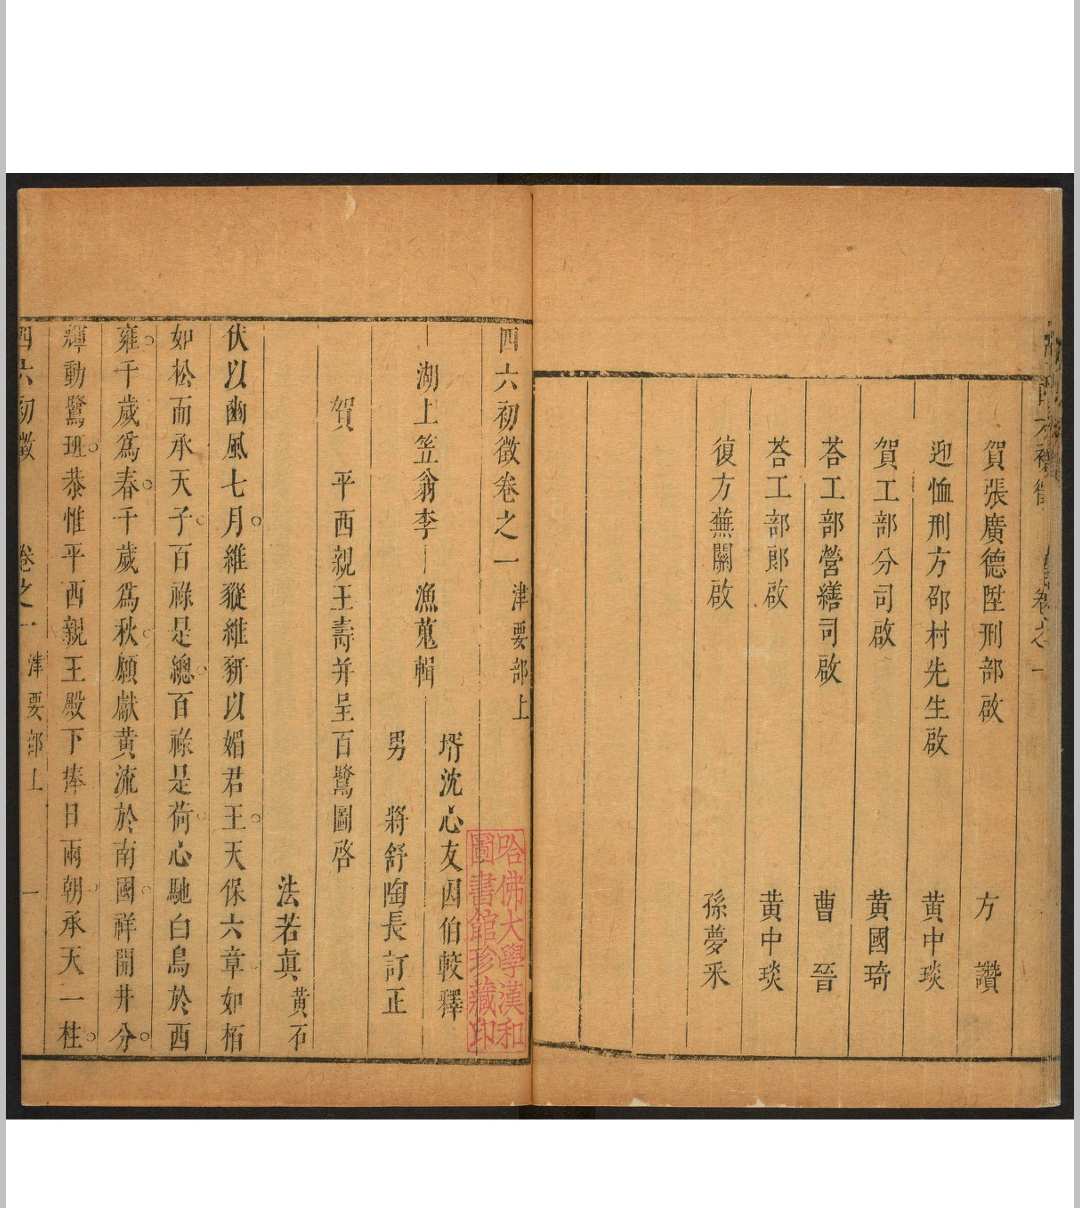 賀張廣德陞刑部啟 方讚
迎恤刑方邵村先生啟 黃中琰
賀工部分司啟 黃國琦
荅工部營繕司啟 曹晉
荅工部郎啟 黃中琰
復方蕪關啟 孫夢釆
四六初徵卷之一 津要部上
湖上笠翁李漁蒐輯
壻沈心友因伯較釋
男將舒陶長訂正
賀平西親王壽并呈百鷺圖啓
法若真 黃石
伏以豳風七月維豵維豜以媚君王天保六章如栢
如松而承天子百祿是總百祿是荷心馳白鳥於西
雍千歲爲春千歲爲秋願獻黃流於南國祥開井分
輝動鷺班恭惟平西親王殿下捧日兩朝承天一柱
四六初徵 卷之一 津要部上 一
哈佛大學漢和
圖書館珍藏印